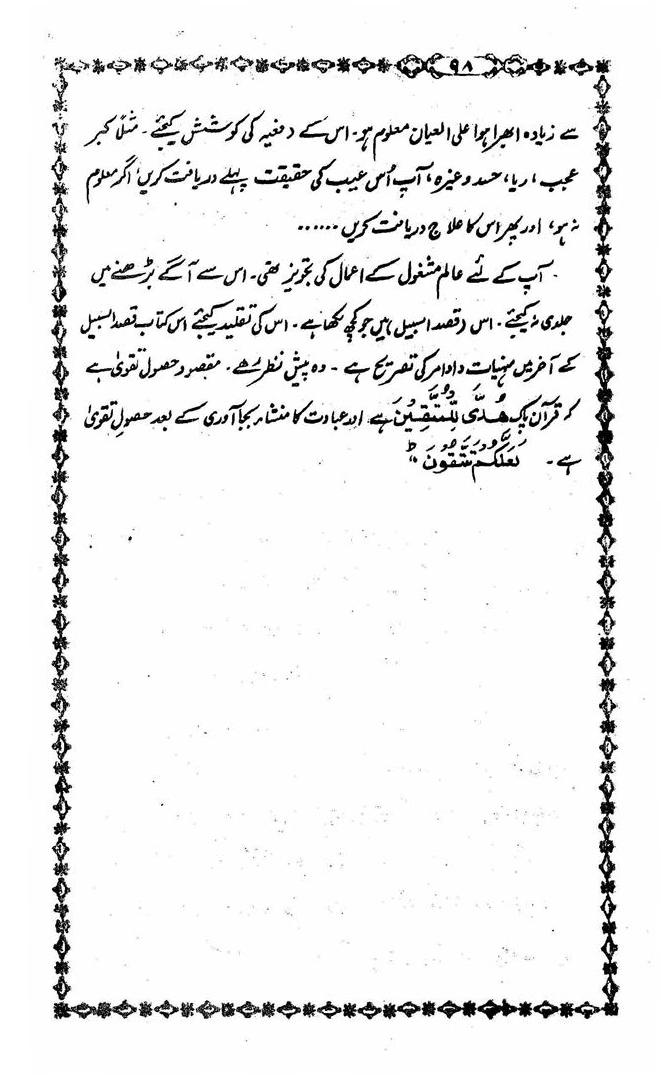 ۹۸
سے زیادہ ابھرا ہوا علی العیان معلوم ہو۔ اس کے دفعیہ کی کوشش کیجئے۔ مثلاً کبر
عجب، ریا، حسد وغیرہ، آپ اُس عیب کی حقیقت پہلے دریافت کریں، اگر معلوم
نہ ہو، اور پھر اس کا علاج دریافت کریں ......
آپ کے لئے عالم مشغول کے اعمال کی تجویز تھی۔ اس سے آگے بڑھنے میں
جلدی نہ کیجئے۔ اس (قصد السبیل) میں جو کچھ لکھا ہے۔ اس کی تقلید کیجئے اس کتاب قصد السبیل
کے آخر میں منہیات و اوامر کی تصریح ہے۔ وہ پیش نظر رہے۔ مقصود حصول تقویٰ ہے
کہ قرآن پاک ھُدًی لِّلْمُتَّقِیْنَ ہے اور عبادت کا منشاء بجا آوری کے بعد حصولِ تقویٰ
ہے۔ لَعَلَّکُمْ تَتَّقُوْنَ ط